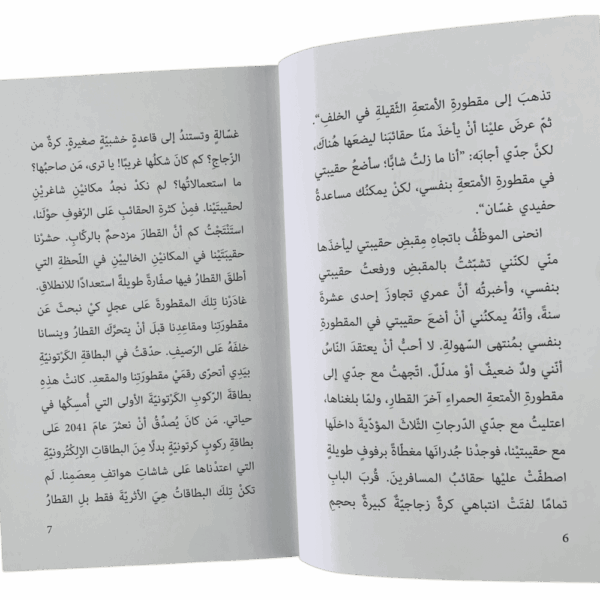 تذهبَ إلى مقطورةِ الأمتعةِ الثّقيلةِ في الخلفِ“.
ثمّ عرضَ عليْنا أنْ يأخذَ منّا حقائبَنا ليضعَها هُناكَ،
لكنَّ جدّي أجابَه: ”أنا ما زلتُ شابًّا؛ سأضعُ حقيبتي
في مقطورةِ الأمتعةِ بنفسي، لكنْ يمكنُك مساعدةُ
حفيدي غسّان“.
انحنى الموظّفُ باتجاهِ مِقبضِ حقيبتي ليأخذَها
منّي لكنّني تشبّثتُ بالمقبضِ ورفعتُ حقيبتي
بنفسي، وأخبرتُه أنَّ عمري تجاوزَ إحدى عشرةَ
سنةً، وأنّهُ يمكنُني أنْ أضعَ حقيبتي في المقطورةِ
بنفسي بمُنتهى السّهولةِ. لا أحبُّ أنْ يعتقدَ النّاسُ
أنّني ولدٌ ضعيفٌ أوْ مدلّلٌ. اتّجهتُ معَ جدّي إلى
مقطورةِ الأمتعةِ الحمراءِ آخرَ القطارِ، ولمّا بلغناها،
اعتليتُ معَ جدّي الدّرجاتِ الثّلاثَ المؤدّيةَ داخلَها
مع حقيبتيْنا، فوجدْنا جُدرانَها مغطّاةً برفوفٍ طويلةٍ
اصطفّتْ عليْها حقائبُ المسافرينَ. قُربَ البابِ
تمامًا لفتَتْ انتباهي كرةٌ زجاجيّةٌ كبيرةٌ بحجمِ
6
غسّالةٍ وتستندُ إلى قاعدةٍ خشبيّةٍ صغيرةٍ. كرةٌ من
الزّجاجِ؟ كم كانَ شكلُها غريبًا! يا ترى، مَن صاحبُها؟
ما استعمالاتُها؟ لم نكدْ نجدُ مكانيْنِ شاغريْنِ
لحقيبتَيْنا. فمِنْ كثرةِ الحقائبِ عَلى الرّفوفِ حوْلَنا،
استَنْتَجْتُ كم أنَّ القطارَ مزدحمٌ بالركّابِ. حشرْنا
حقيبَتَيْنا في المكانيْنِ الخاليينِ في اللّحظةِ التي
أطلقَ القطارُ فيها صفّارةً طويلةً استعدادًا للانطلاقِ.
غادَرْنا تِلكَ المقطورةَ عَلى عجلٍ كيْ نبحثَ عن
مقطورتِنا ومقاعدِنا قبلَ أنْ يتحرّكَ القطارُ وينسانا
خلفَهُ عَلى الرّصيفِ. حدّقتُ في البطاقةِ الكَرْتونيّةِ
بيَدِي أتحرّى رقمَيْ مقطورَتِنا والمقعدِ. كانتْ هذِهِ
بطاقةَ الرّكوبِ الكَرْتونيّةَ الأولى التي أُمسِكُها في
حياتي. مَن كانَ يُصدِّقُ أنْ نعثرَ عامَ 2041 عَلى
بطاقةِ ركوبٍ كرتونيّةٍ بدلًا منَ البطاقاتِ الإلكْترونيّةِ
التي اعتدْناها عَلى شاشاتِ هواتفِ معصَمِنا. لَم
تكنْ تِلكَ البطاقاتُ هِيَ الأثريّةَ فقط بلِ القطارُ
7